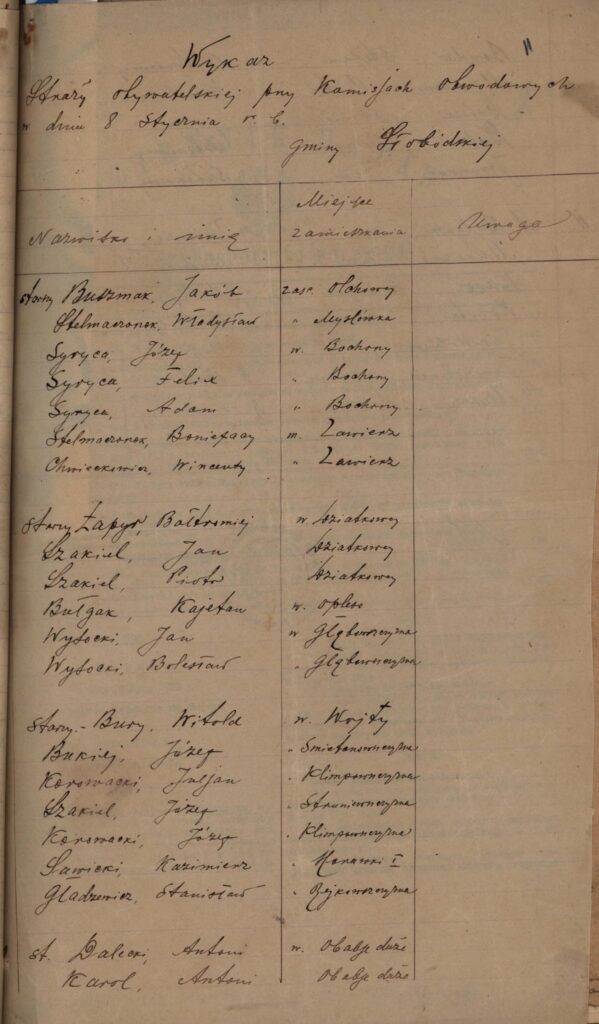 11
Wykaz
Straży obywatelskiej przy Komisjach obwodowych
w dniu 8 Stycznia r. b.
gminy Słobódskiej
Nazwisko i imię Miejsce zamieszkania Uwaga
starszy Buszmak, Jakób zaśc. Olchowy
Stelmaczonek, Władysław " Mysłówka
Syryca, Józef w. Bochony
Syryca, Felix " Bochony
Syryca, Adam " Bochony
Stelmaczonek, Bonifacy m. Zawierz
Chwieckowicz, Wincenty " Zawierz
starszy Łapyr, Bałtromiej w. Dziatkowy
Szakiel, Jan Dziatkowy
Szakiel, Piotr Dziatkowy
Bułgak, Kajetan w. Opleso
Wysocki, Jan w Głębowszczyzna
Wysocki, Bolesław " Głębowszczyzna
starszy - Bury, Witold w. Wojty
Bukiej, Józef " Śmietanowszczyzna
Korowacki, Juljan " Klimpowszczyzna
Szakiel, Józef "
Korowacki, Józef " Klimpowszczyzna
Sawicki, Kazimierz " I
Gladzewicz, Stanisław " Rejkowszczyzna
st. Dalecki, Antoni w. Obabje duże
Karol, Antoni Obabje duże